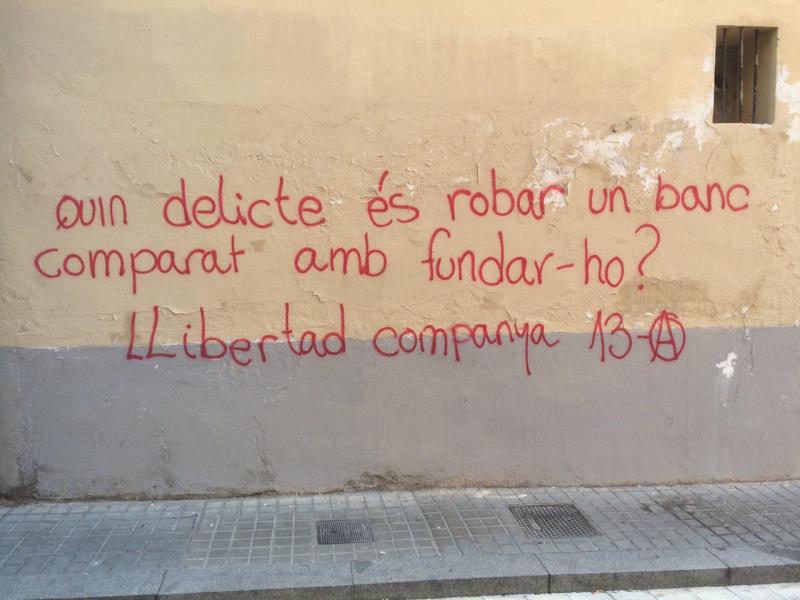 QUIN delicte és robar un banc
comparat amb fundar-ho?
LLibertad companya 13-A